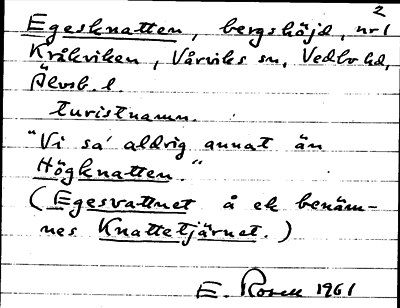 2
Egesknatten, bergshöjd, nr 1
Kråkviken, Vårviks sn, Vedbo hd,
Älvsb. l.
Turistnamn.
"Vi sa' aldrig annat än
Högknatten."
(Egesvattnet å ek benäm-
nes Knattetjärnet.)
E. Rosell 1961